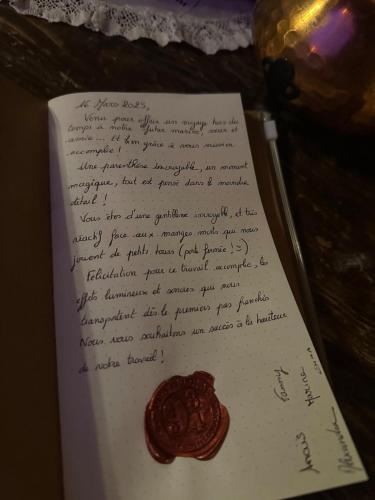 16 Mars 2025,
Venu pour offrir un voyage hors du
temps à notre future mariée, sœur et
amie... Et bien grâce à vous mission
accomplie !
Une parenthèse incroyable, un moment
magique, tout est pensé dans le moindre
détail !
Vous êtes d'une gentillesse incroyable, et très
réactif face aux manges morts qui nous
jouent de petits tours (porte fermée ! :)
Félicitation pour ce travail accomplie, les
effets lumineux et sonores qui nous
transportent dès le premiers pas franchis
Nous vous souhaitons un succès à la hauteur
de votre travail !
Anaïs
Fanny
Marine
Alexandra